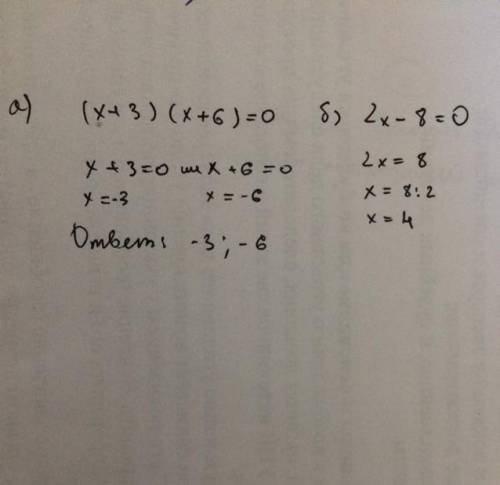 а) (x+3)(x+6)=0
x+3=0 или x+6=0
x=-3 x=-6
Ответ: -3; -6
б) 2x-8=0
2x=8
x=8:2
x=4